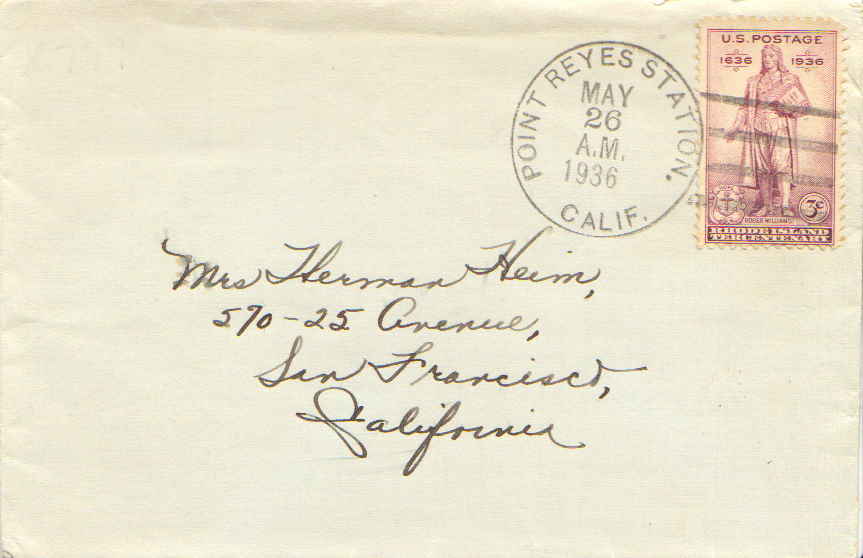 U.S. POSTAGE
1636 1936
POINT REYES STATION.
MAY
26
A.M.
1936
CALIF.
3¢
ROGER WILLIAMS
RHODE ISLAND
TERCENTENARY
Mrs Herman Heim,
570-25 Avenue,
San Francisco,
California